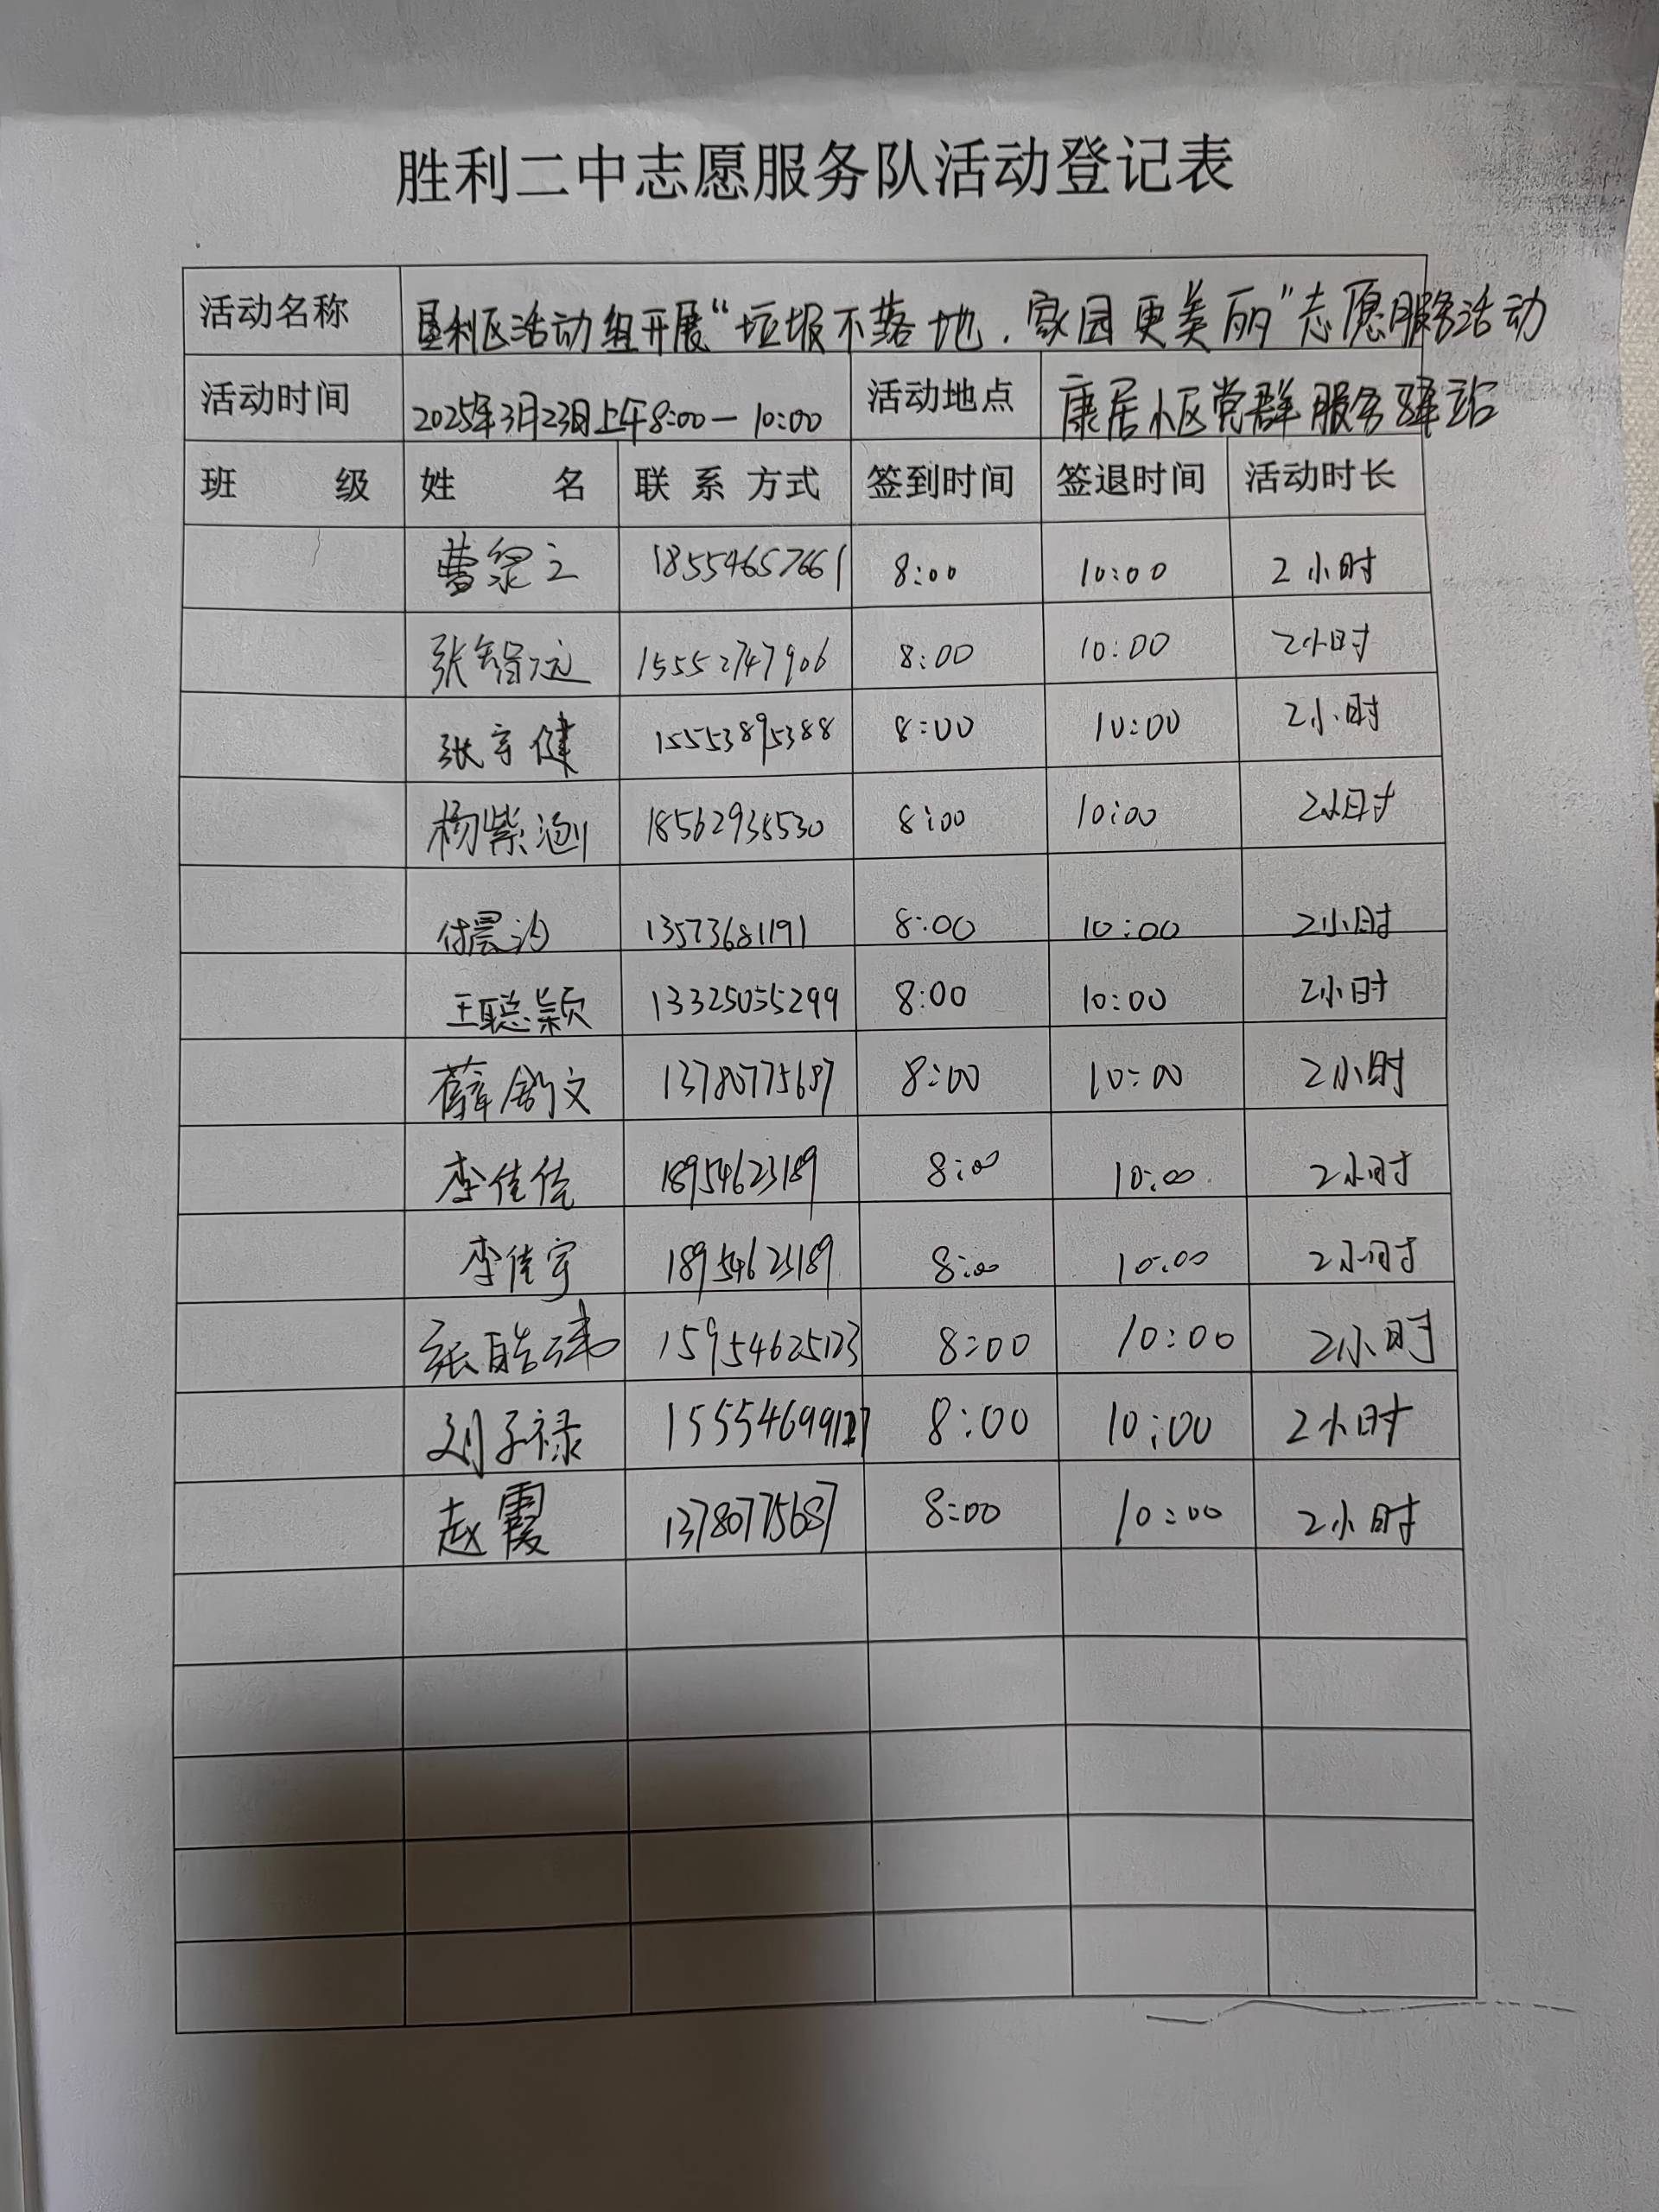 胜利二中志愿服务队活动登记表
活动名称 垦利区活动组开展“垃圾不落地,家园更美丽”志愿服务活动
活动时间 2025年3月23日上午8:00—10:00 活动地点 康居小区党群服务驿站
班 级 姓 名 联系方式 签到时间 签退时间 活动时长
18554657661 8:00 10:00 2小时
张智远 15552747906 8:00 10:00 2小时
张宇健 15553895388 8:00 10:00 2小时
杨紫涵 18562938530 8:00 10:00 2小时
付晨汐 13573681191 8:00 10:00 2小时
王聪颖 13325055299 8:00 10:00 2小时
薛舒文 13780775687 8:00 10:00 2小时
李佳佳 18954623189 8:00 10:00 2小时
李佳宇 18954623189 8:00 10:00 2小时
张皓玮 15954625123 8:00 10:00 2小时
刘子禄 8:00 10:00 2小时
赵霞 13780775687 8:00 10:00 2小时